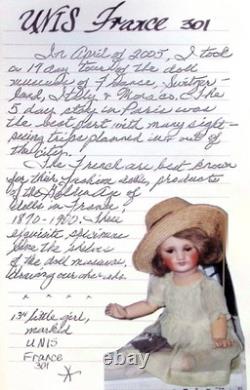 UNIS France 301
In April of 2005, I took
a 17 day tour of the doll
museums of France, Switzer-
land, Italy & Monaco. The
5 day stay in Paris was
the best part with many sight-
seeing trips planned in & out of
the city.
The French are best known
for their fashion dolls, products
of the Golden Age of
dolls in France,
1870-1900. These
exquisite specimens
line the shelves
of the doll museums,
* * *
13" little girl,
marked
UNIS
France
301
ebth.com